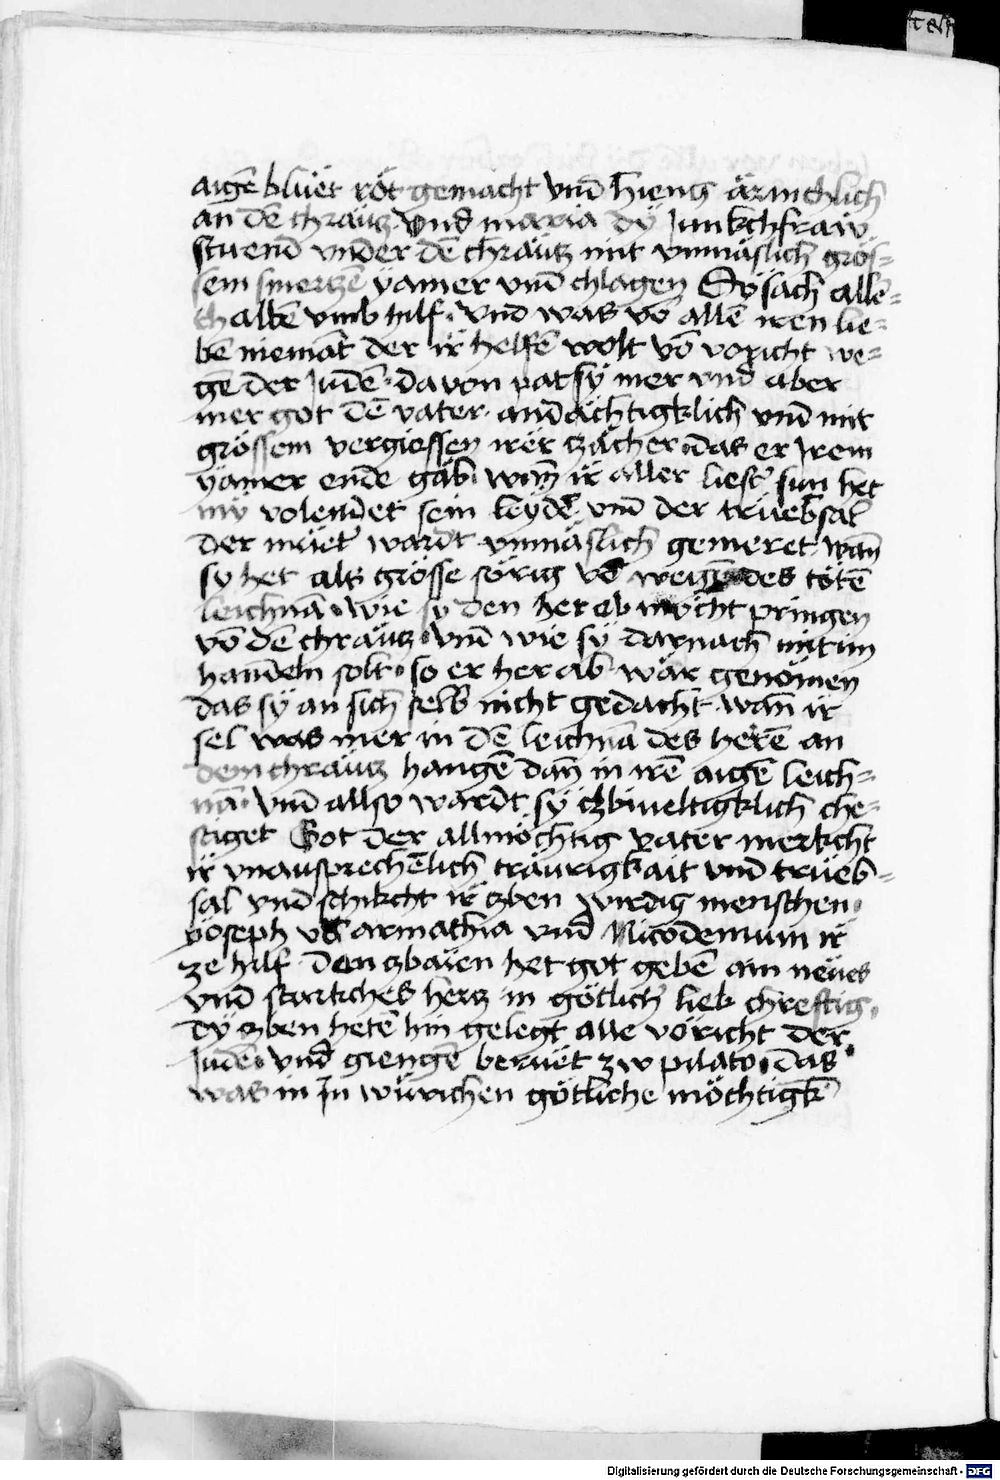 aigē bluët röt gemacht vnd hieng ärmchlich
an dē chräwz. Vnd maria dÿ Junkchfraw
stuend vnder dē chräwtz mit vnmäslich grös=
sem smertzē yamer vnd chlagen So sach allē=
thalbē vmb hilf. vnd was vō allē iren lie=
bē niemāt der ir helfē wolt vō voricht we=
gē der Judē. da von pat sÿ mer vnd aber
mer got dē vater. andächtigklich vnd mit
grössem vergiessen irer zächer das er Irem
yamer ende gäb. wan ir aller liester sun het
nw volendet sein leydē. vnd der trüebsal
der mueter wardt vnmäslich gemeret. wan
sy het als grösse sörig vō wegē des tötē
leichnā. wie sy den her ab möcht pringen
vō dē chräwtz. vnd wie sÿ darnach mit im
handeln solt. so er her ab wär genömen
das sÿ an sich selb nicht gedacht. wan ir
sel was mer in dē leichnā des herrē an
dem chräwtz hangē dan in irē aigē leich=
nā. vnd allso wardt sÿ czbiueltigklich che=
stiget Got der allmöchtig vater merkcht
ir vnausprechēlich träurigkait vnd trüeb=
sal vnd schikcht ir zben wirdig menschen.
yoseph vō armathia vnd Nicodemum ir
ze hilf. den zbaien het got gebē ain neües
vnd starkches hertz in götlicher lieb chreftig.
dÿ zben hetē hin gelegt alle vöricht der
Judē. vnd giengē beruët zw pilato. das
was in In würchen götliche möchtigk
Digitalisierung gefördert durch die Deutsche Forschungsgemeinschaft - DFG